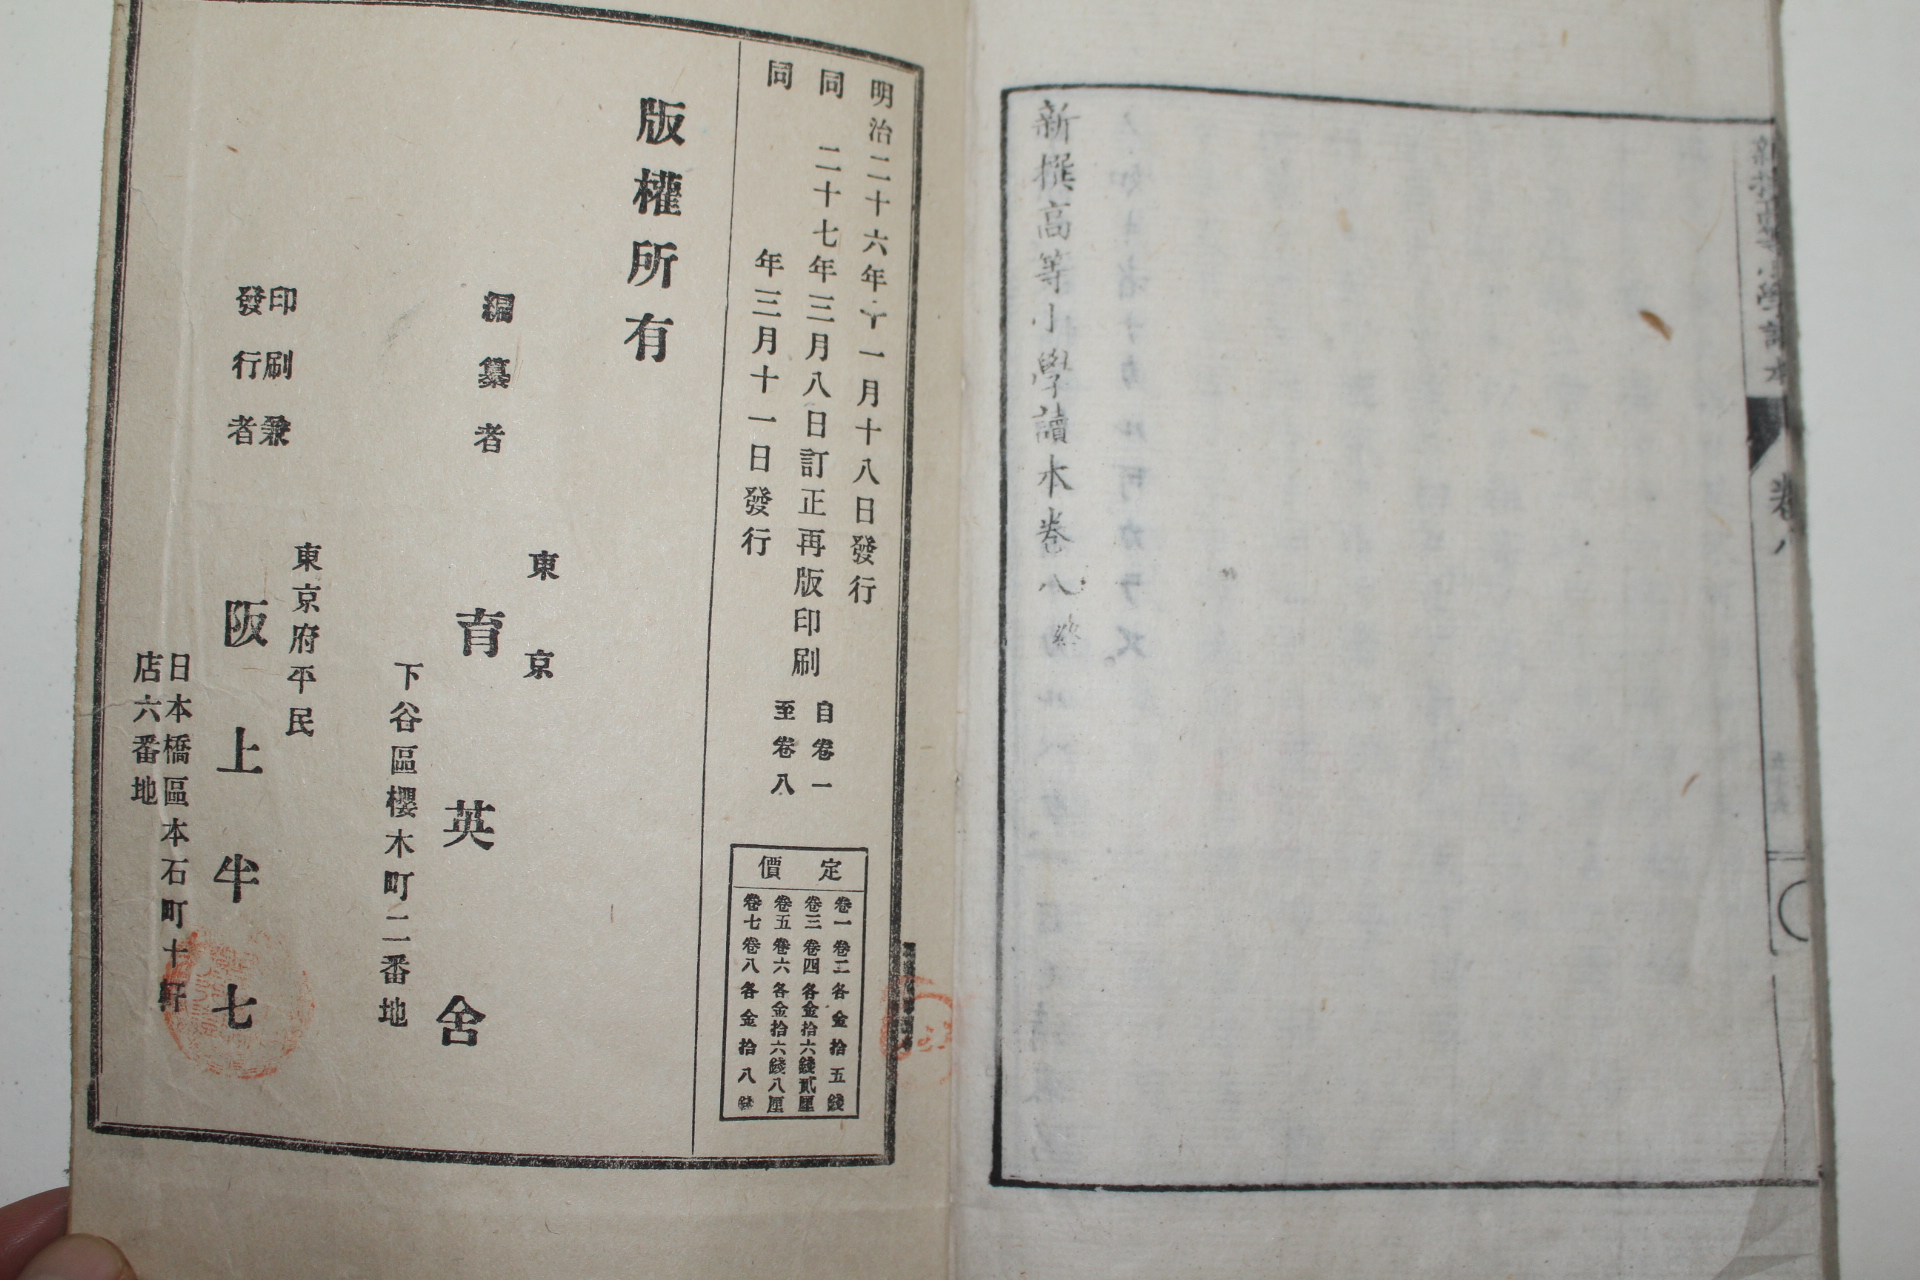 新撰高等小學讀本卷八終
明治二十六年十一月十八日發行
同二十七年三月八日訂正再版印刷
同年三月十一日發行
自卷一
至卷八
定價
卷一卷二各金拾五錢
卷三卷四各金拾六錢貳厘
卷五卷六各金拾六錢八厘
卷七卷八各金拾八錢
版權所有
東京
編纂者
育英舍
下谷區櫻木町二番地
東京府平民
印刷兼
發行者
阪上半七
日本橋區本石町十軒
店六番地